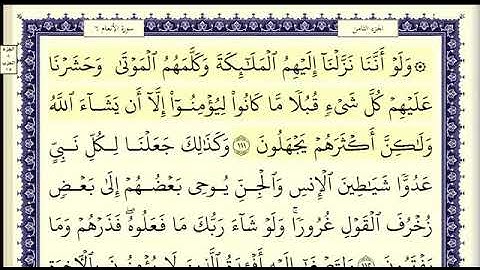 الجزء الثامن
سورة الأنعام ٦
۞ وَلَوْ أَنَّنَا نَزَّلْنَآ إِلَيْهِمُ ٱلْمَلَـٰٓئِكَةَ وَكَلَّمَهُمُ ٱلْمَوْتَىٰ وَحَشَرْنَا
عَلَيْهِمْ كُلَّ شَىْءٍ قُبُلًا مَّا كَانُوا۟ لِيُؤْمِنُوٓا۟ إِلَّآ أَن يَشَآءَ ٱللَّهُ
وَلَـٰكِنَّ أَكْثَرَهُمْ يَجْهَلُونَ ١١١ وَكَذَٰلِكَ جَعَلْنَا لِكُلِّ نَبِىٍّ
عَدُوًّا شَيَـٰطِينَ ٱلْإِنسِ وَٱلْجِنِّ يُوحِى بَعْضُهُمْ إِلَىٰ بَعْضٍ
زُخْرُفَ ٱلْقَوْلِ غُرُورًا ۚ وَلَوْ شَآءَ رَبُّكَ مَا فَعَلُوهُ ۖ فَذَرْهُمْ وَمَا
يَفْتَرُونَ ١١٢ وَلِتَصْغَىٰٓ إِلَيْهِ أَفْـِٔدَةُ ٱلَّذِينَ لَا يُؤْمِنُونَ بِٱلْـَٔاخِرَةِ